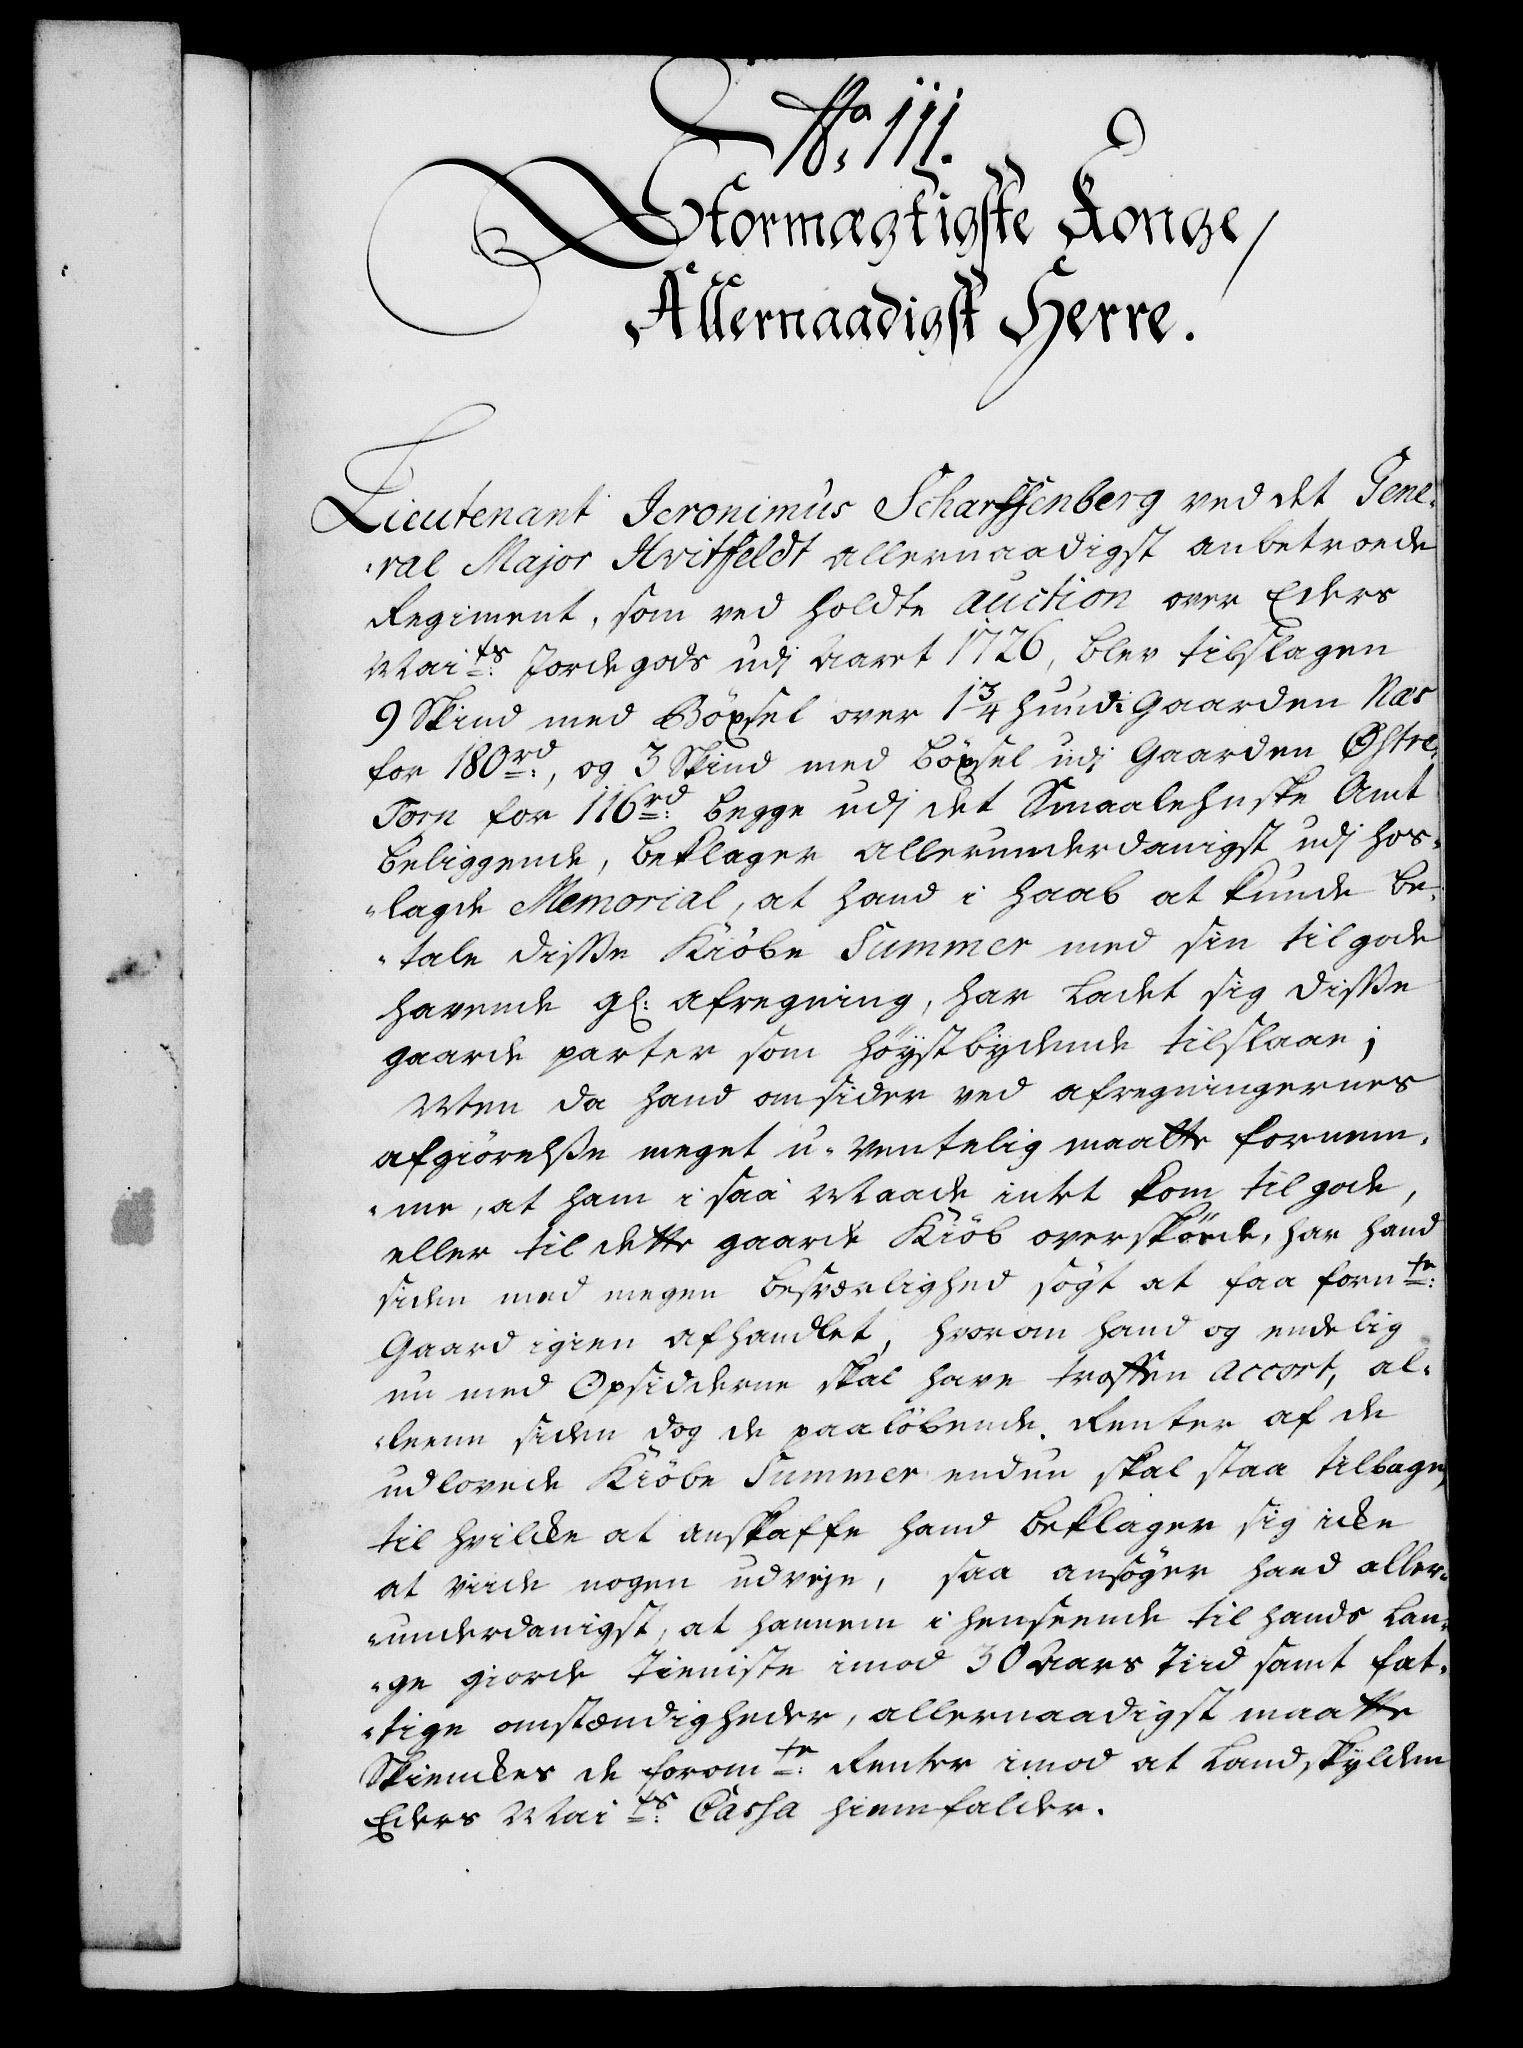 No: 111.
Stormægtigste Konge,
Allernaadigst Herre.
Lieutenant Jeronimus Scharffenberg ved det Gene-
-ral Major Hvitfeldt allernaadigst anbetroede
Regiment, som ved holdte auction over Eders
Maits: Jordegods udj Aaret 1726, blev tilslagen
9 Skind med Böxsel over 1 3/4 hund: Gaarden Næs
for 180rd:, og 3 Skind med böxsel udj Gaarden Østre
Torp for 116rd: begge udj det Smaalehnske Amt
beliggende, beklager allerunderdanigst udj hos-
-lagde Memorial, at hand i haab at kunde be-
-tale disse Kiöbe Summer med sin tilgode
havende gl: afregning, har ladet sig disse
gaarde parter som höystbydende tilslaae;
Men da hand omsider ved afregningernes
afgiörelsse meget u-ventelig maatte fornem-
-me, at ham i saa Maade intet kom til gode,
eller til dette gaarde Kiöb overskörde, har hand
siden med megen besværlighed sögt at faa fornte:
Gaard igien afhandlet, hvorom hand og endelig
nu med Opsidderne skal have troffen accort, al-
-leene siden dog de paalöbende Renter af de
udlovede Kiöbe Summer endnu skal staa tilbage,
til hvilcke at anskaffe hand beklager sig icke
at viide nogen udveje, saa ansöger hand aller-
-underdanigst, at hannem i henseende til hands lan-
-ge giorde tieniste imod 30 Aars Tiid samt fat-
-tige omstændigheder, allernaadigst maatte
Skienckes de forommte: Renter imod at Landskylden
Eders Maits: Cassa hiemfalder.